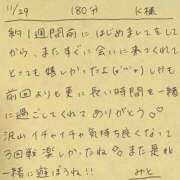 11/29 180分 K様
約1週間前にはじめましてをして
から、またすぐに会いに来てくれて
とっても嬉しかったよ(^^)しかも
前回よりも更に長い時間を一緒
に過ごしてくれてありがとう♡
沢山イチャイチャ気持ち良くなって
3回戦楽しかったね♡また是非
一緒に遊ぼうね!!
みと